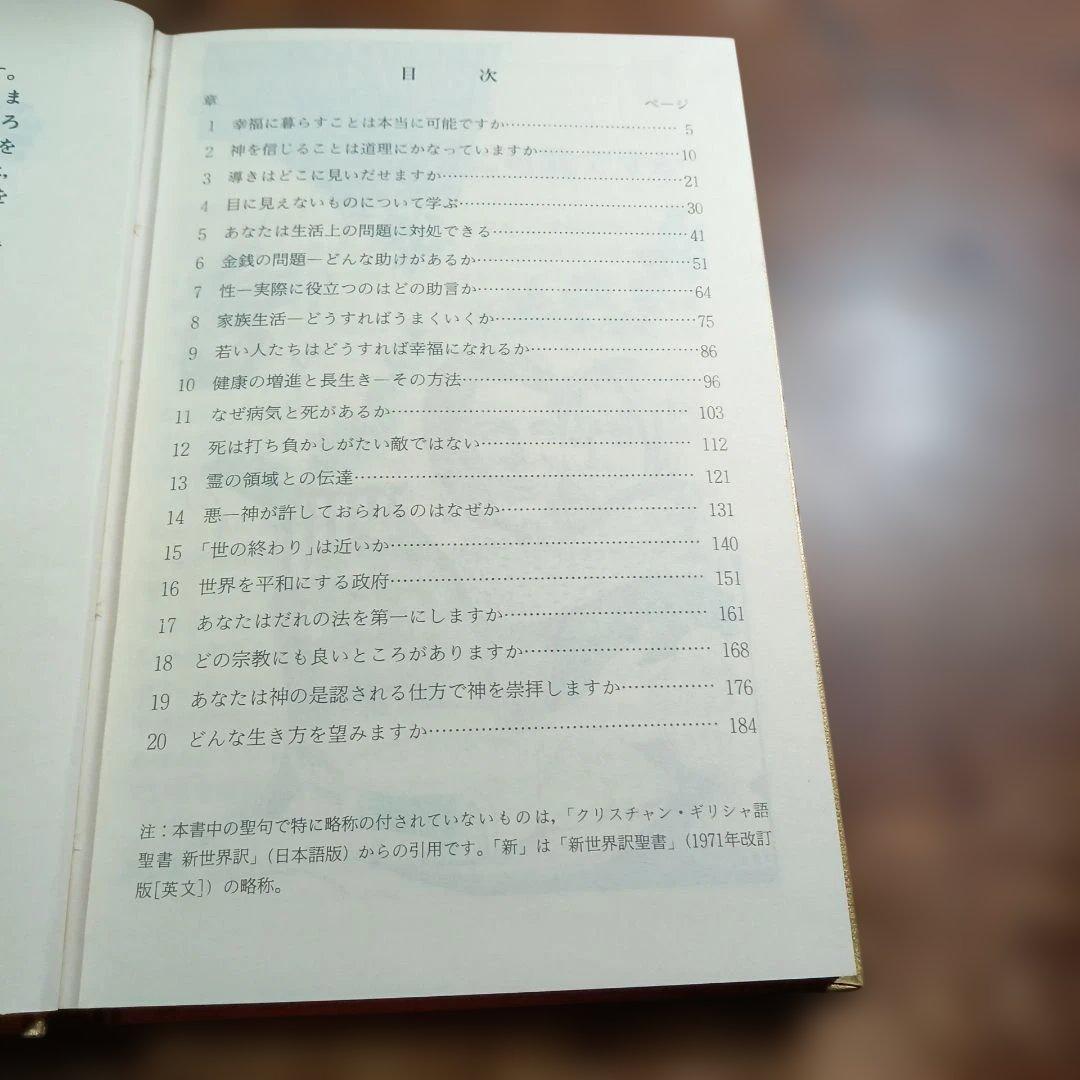 す。
ま
ろ
を
を
目 次
章 ページ
1 幸福に暮らすことは本当に可能ですか……………………………… 5
2 神を信じることは道理にかなっていますか………………………… 10
3 導きはどこに見いだせますか………………………………………… 21
4 目に見えないものについて学ぶ……………………………………… 30
5 あなたは生活上の問題に対処できる………………………………… 41
6 金銭の問題―どんな助けがあるか…………………………………… 51
7 性―実際に役立つのはどの助言か…………………………………… 64
8 家族生活―どうすればうまくいくか………………………………… 75
9 若い人たちはどうすれば幸福になれるか…………………………… 86
10 健康の増進と長生き―その方法……………………………………… 96
11 なぜ病気と死があるか………………………………………………… 103
12 死は打ち負かしがたい敵ではない…………………………………… 112
13 霊の領域との伝達……………………………………………………… 121
14 悪―神が許しておられるのはなぜか………………………………… 131
15 「世の終わり」は近いか……………………………………………… 140
16 世界を平和にする政府………………………………………………… 151
17 あなたはだれの法を第一にしますか………………………………… 161
18 どの宗教にも良いところがありますか……………………………… 168
19 あなたは神の是認される仕方で神を崇拝しますか……………… 176
20 どんな生き方を望みますか…………………………………………… 184
注：本書中の聖句で特に略称の付されていないものは，「クリスチャン・ギリシャ語
聖書 新世界訳」（日本語版）からの引用です。「新」は「新世界訳聖書」（1971年改訂
版[英文]）の略称。